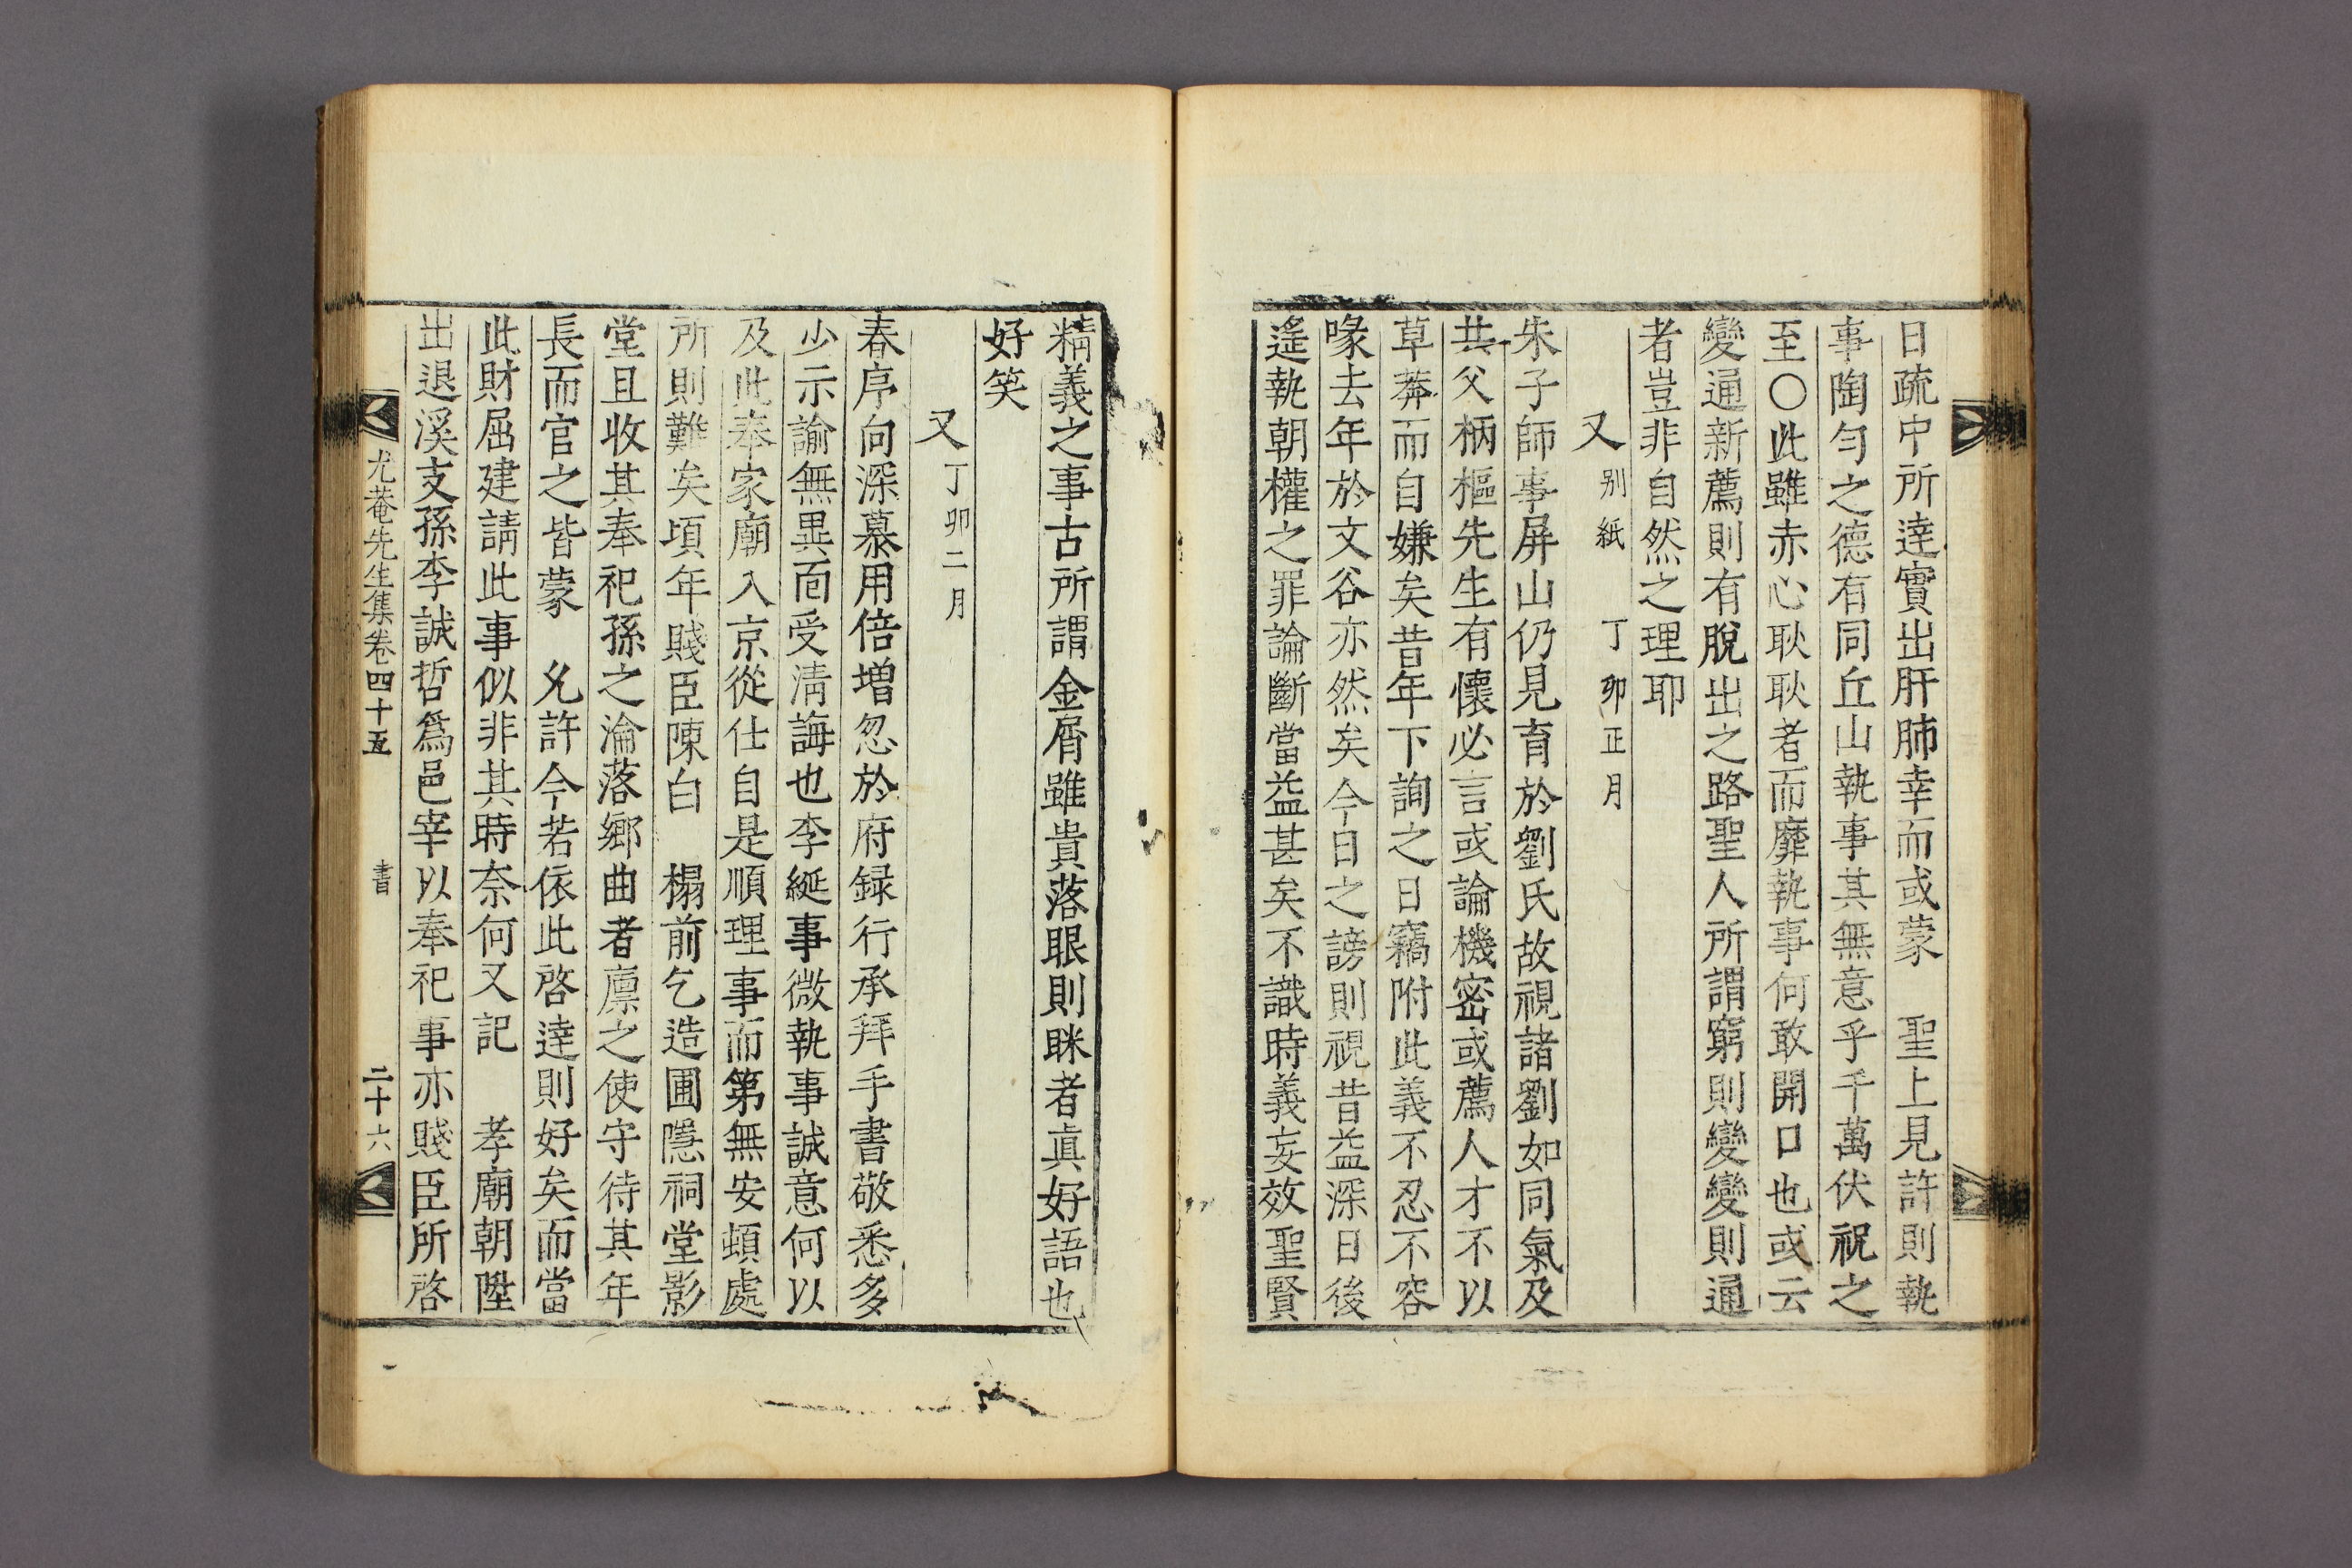 日疏中所達實出肝肺幸而或蒙　聖上見許則執
事陶勻之德有同丘山執事其無意乎千萬伏祝之
至〇此雖赤心耿耿者而靡執事何敢開口也或云
變通新薦則有脫出之路聖人所謂窮則變變則通
者豈非自然之理耶
又別紙　丁卯正月
朱子師事屏山仍見育於劉氏故視諸劉如同氣及
共父柄樞先生有懷必言或論機密或薦人才不以
草莽而自嫌矣昔年下詢之日竊附此義不忍不容
喙去年於文谷亦然矣今日之謗則視昔益深日後
遙執朝權之罪論斷當益甚矣不識時義妄效聖賢
精義之事古所謂金屑雖貴落眼則眯者眞好語也
好笑
又丁卯二月
春序向深慕用倍增忽於府録行承拜手書敬悉多
少示諭無異面受淸誨也李綖事微執事誠意何以
及此奉家廟入京從仕自是順理事而第無安頓處
所則難矣頃年賤臣陳白　榻前乞造圃隱祠堂影
堂且收其奉祀孫之淪落鄉曲者廩之使守待其年
長而官之皆蒙　允許今若依此啓達則好矣而當
此財屈建請此事似非其時奈何又記　孝廟朝陞
出退溪支孫李誠哲爲邑宰以奉祀事亦賤臣所啓
尤菴先生集卷四十五　書　二十六